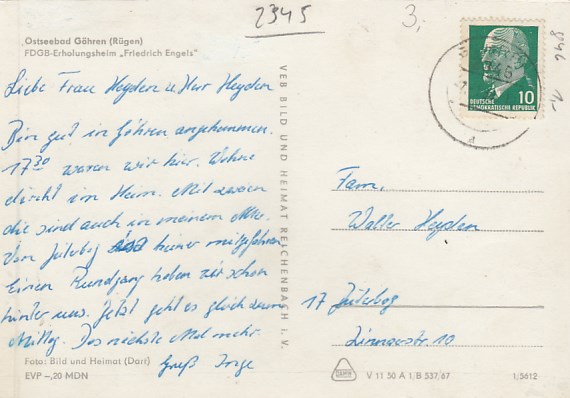 2345
3,-
Ostseebad Göhren (Rügen)
FDGB-Erholungsheim „Friedrich Engels"
Liebe Frau Heyden u. Herr Heyden
Bin gut in Göhren angekommen.
17³⁰ waren wir hier. Wohne
direkt im Heim. Mit
die sind auch in meinem Alter.
Von Jüterbog keiner mitgefahren
Einen Rundgang haben wir schon
hinter uns. Jetzt geht es gleich zum
Mittag. Das nächste Mal mehr.
Gruß Inge
Foto: Bild und Heimat (Darr)
EVP –,20 MDN
VEB BILD UND HEIMAT REICHENBACH I. V.
10
DEUTSCHE
DEMOKRATISCHE REPUBLIK
Fam.
Walter Heyden
17 Jüterbog
Zinnaerstr. 10
V 11 50 A 1, B 537/67
1,5612